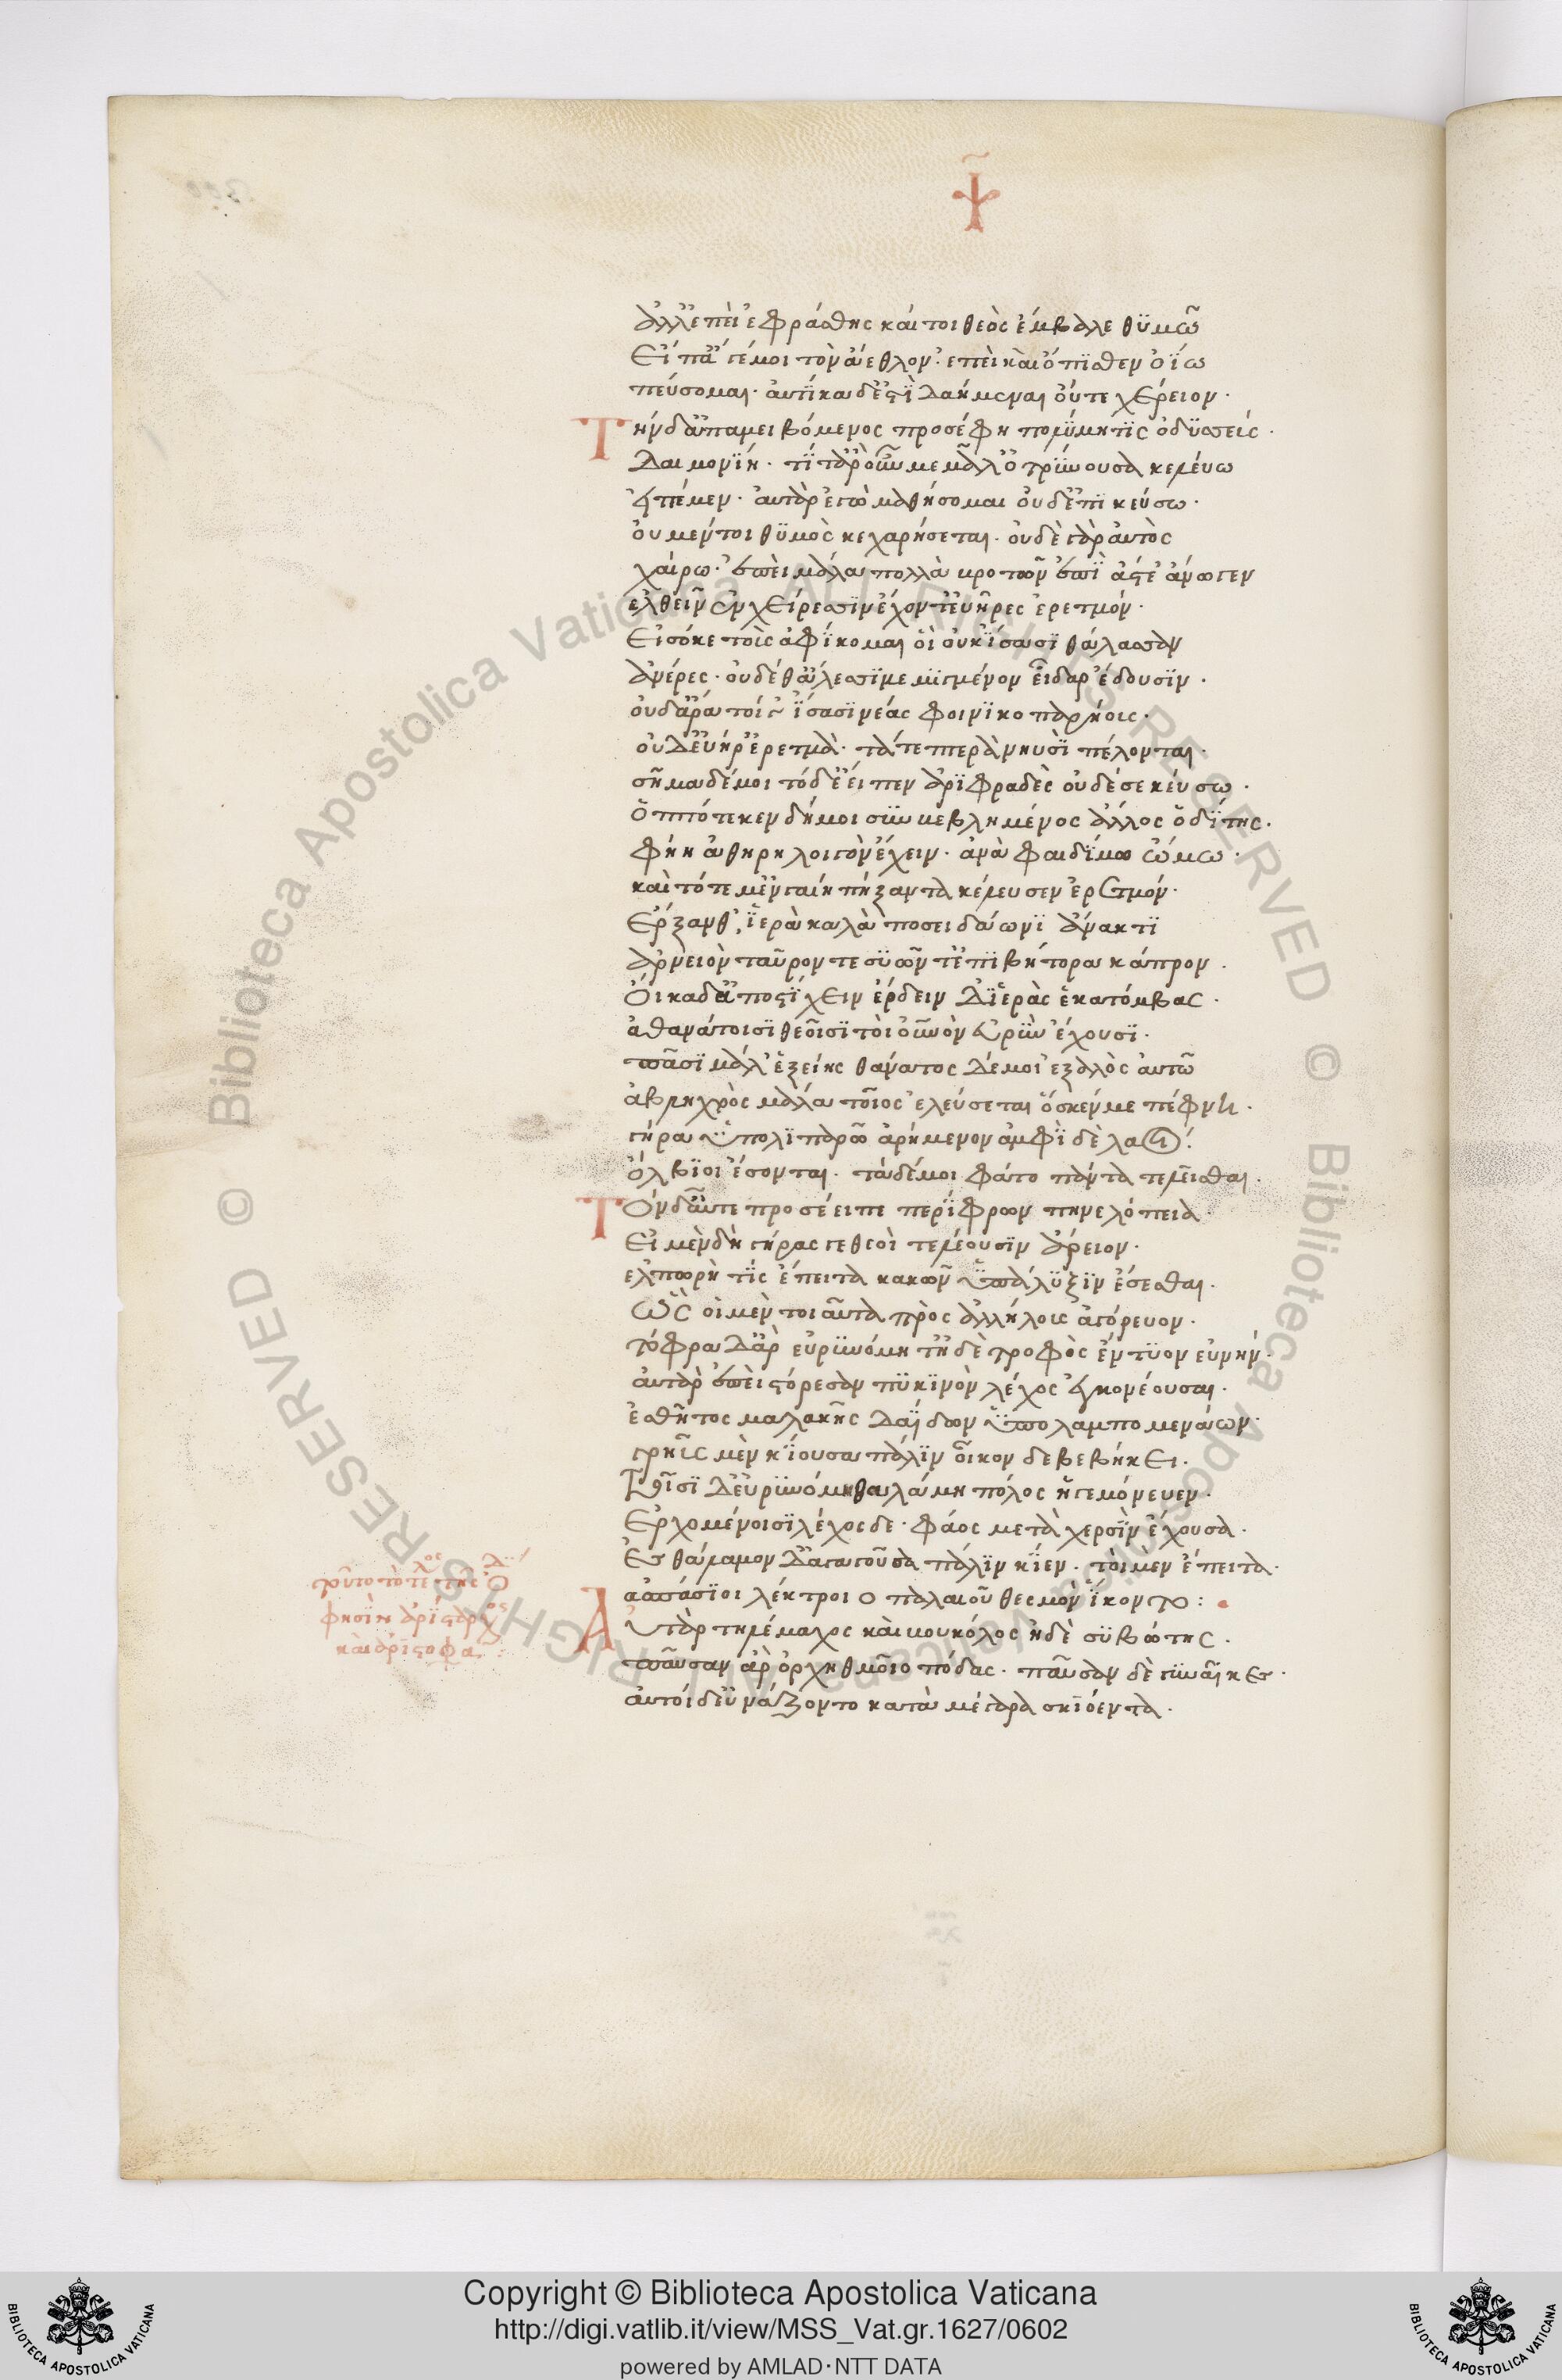 Ψ
ἀλλ' ἐπεὶ ἐφράσθης καί τοι θεὸς ἔμβαλε θϋμῶ
Εἴπ' ἄγέ μοι τὸν ἄεθλον· ἐπεὶ καὶ ὄπϊσθεν ὀΐω
πεύσομαι· αὐτίκα δ' ἐστὶ δαήμεναι οὔτι χέρειον·
Τὴν δ' ἀπαμειβόμενος προσέφη πολύμητϊς ὀδϋσσεύς·
Δαιμονίη· τί τ' ἄρ' οὖν με μάλ' ὀτρύνουσα κελεύω
εἰπέμεν· αὐτὰρ ἐγὼ μυθήσομαι οὐδ' ἐπϊκεύσω·
οὐ μέν τοι θϋμὸς κεχαρήσεται· οὐδὲ γὰρ αὐτὸς
χαίρω· ἐπεὶ μάλα πολλὰ βροτῶν ἐπὶ ἄστε' ἄνωγεν
ἐλθεῖν ἐν χείρεσσϊν ἔχοντ' εὐῆρες ἐρετμόν·
Εἰσόκε τοὺς ἀφίκομαι οἳ οὐκ ἴσασϊ θάλασσαν
ἀνέρες· οὐδέ θ' ἅλεσσϊ μεμϊγμένον εἶδαρ ἔδουσϊν·
οὐδ' ἄρα τοίγ' ἴσασϊ νέας φοινϊκοπαρήους·
οὐδ' εὐήρε' ἐρετμὰ· τά τε πτερὰ νηυσὶ πέλονται·
σῆμα δέ μοι τόδ' ἔειπεν ἀρϊφραδὲς οὐδέ σε κεύσω·
ὁππότε κεν δή μοι συμβλημένος ἄλλος ὁδίτης·
φήη ἀθηρηλοιγὸν ἔχειν· ἀνὰ φαιδίμω ὤμω·
καὶ τότε μ' ἐν γαίη πήξαντα κέλευσεν ἐρετμόν·
Ἐρξανθ' ϊερὰ καλὰ ποσειδάωνϊ ἄνακτϊ
ἀρνειὸν ταῦρον τε συῶν τ' ἐπϊβήτορα κάπρον·
Οἴκαδ' ἀποστίχειν ἔρδειν δ' ϊερὰς ἑκατόμβας·
ἀθανάτοισϊ θεοῖσϊ τοὶ οὐνὸν εὐρὺν ἔχουσϊ·
πᾶσϊ μάλ' ἑξείης θάνατος δέ μοι ἐξ ἁλὸς αὐτῶ
ἀβληχρὸς μάλα τοῖος ἐλεύσεται ὅς κέν με πέφνη·
γήρα ὕπο λϊπαρῶ ἀρήμενον ἀμφὶ δὲ λαοὶ
ὄλβϊοι ἔσονται· τὰ δέ μοι φάτο πάντα τελεῖσθαι·
Τὸν δ' αὖτε προσέειπε περίφρων πηνελόπεια
Εἰ μὲν δὴ γῆράς γε θεοὶ τελέουσϊν ἄρειον·
ἐλπωρή τίς ἔπειτα κακῶν ὑπάλϋξϊν ἔσεσθαι·
Ὣς οἱ μὲν τοιαῦτα πρὸς ἀλλήλους ἀγόρευον·
τόφρα δ' ἄρ' εὐρϋνόμη τ' ἠδὲ τροφὸς ἔντϋον εὐνὴν·
αὐτὰρ ἐπεὶ στόρεσαν πϋκϊνὸν λέχος ἐγκονέουσαι·
ἐσθῆτος μαλακῆς δαΐδων ὕπο λαμπομενάων·
γρηῢς μὲν κίουσα πάλϊν οἶκον δε βεβήκει·
Τοῖσϊ δ' εὐρϋνόμη θαλάμηπόλος ἡγεμόνευεν·
Ἐρχομένοισϊ λέχος δε· φάος μετὰ χερσὶν ἔχουσα·
Ἐς θάλαμον δ' ἀγαγοῦσα πάλϊν κίεν· τοὶ μὲν ἔπειτα·
ἀσπάσϊοι λέκτροιο παλαιοῦ θεσμὸν ἵκοντο:
Αὐτὰρ τηλέμαχος καὶ βουκόλος ἠδὲ σϋβώτης·
παῦσαν ἄρ' ὀρχηθμοῖο πόδας· παῦσαν δὲ γυναῖκας·
αὐτοὶ δ' εὐνάζοντο κατὰ μέγαρα σκϊόεντα·
τοῦτο τὸ τέλος τῆς Ὀδ
φησὶν ἀρίσταρχος
καὶ ἀριστοφα
Copyright © Biblioteca Apostolica Vaticana
http://digi.vatlib.it/view/MSS_Vat.gr.1627/0602
powered by AMLAD·NTT DATA
BIBLIOTECA APOSTOLICA VATICANA
BIBLIOTECA APOSTOLICA VATICANA
© Biblioteca Apostolica Vaticana ALL RIGHTS RESERVED
© Biblioteca Apostolica Vaticana ALL RIGHTS RESERVED